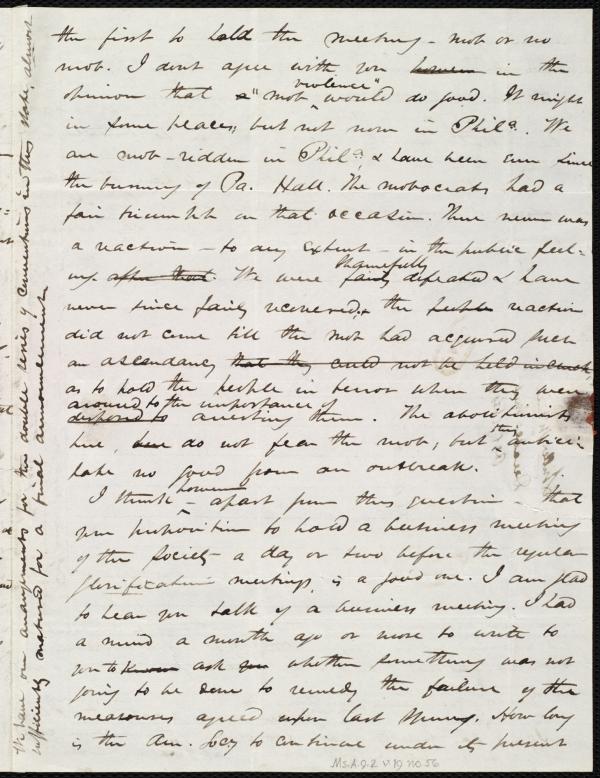 the first to hold the meeting - mob or no
mob. I dont agree with you in the
opinion that "mob violence" would do good. It might
in some places, but not now in Phila. We
are mob-ridden in Phila, & have been ever since
the burning of Pa. Hall. The mobocrats had a
fair triumph on that occasion. There never was
a reaction - to any extent - in the public feel-
ing after that. We were shamefully defeated & have
never since fairly recovered. the people reaction
did not come till the mob had acquired such
an ascendancy that they could not be held in check,
as to hold the people in terror when they were
aroused to the importance of
disposed to arresting them. The abolitionists
here, do not fear the mob; but they antici-
pate no good from an outbreak.
I think however - apart from this question - that
your proposition to hold a business meeting
of the Society a day or two before the regular
glorification meetings, is a good one. I am glad
to hear you talk of a business meeting. I had
a mind a month ago or more to write to
you to know ask you whether something was not
going to be done to remedy the failure of the
measures agreed upon last Spring. How long
is the Am. Socy to continue under its present
We have our arrangements for this double series of conventions in this State, almost
sufficiently matured for a final announcement
Ms.A.9.2 v.19 no.56